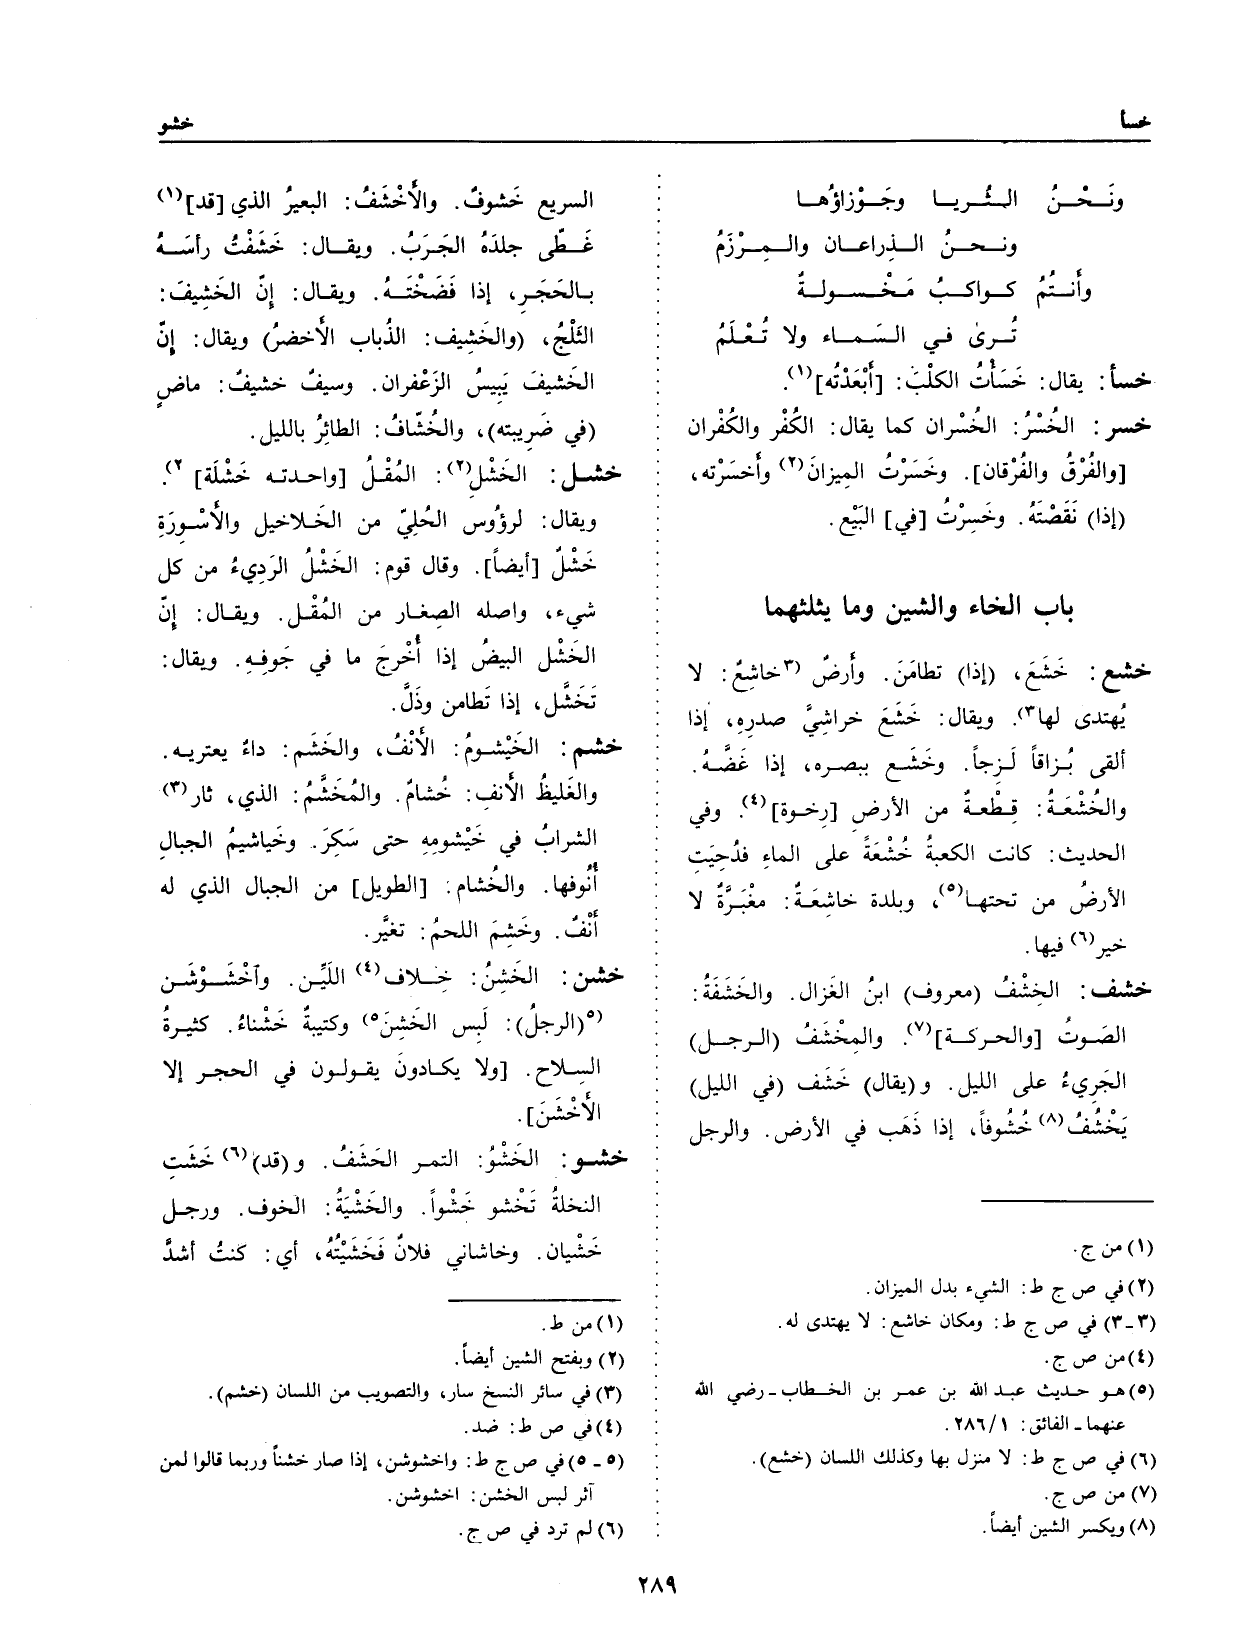 خسأ
خشو
ونَـحْـنُ الـثُـريـا وجَـوْزاؤُهـا
ونـحـنُ الـذِراعـان والـمِـرْزَمُ
وأَنـتُمُ كـواكـبُ مَـخْـسـولـةٌ
تُـرىٰ فـي الـسَـمـاء ولا تُـعْـلَمُ
خسأ: يقال: خَسَأْتُ الكلْبَ: [أَبْعَدْتُه](١).
خسر: الخُسْرُ: الخُسْران كما يقال: الكُفْر والكُفْران
[والفُرْقُ والفُرْقان]. وخَسَرْتُ الميزانَ(٢) وأخسَرْته،
(إذا) نَقَصْتَهُ. وخَسِرْتُ [في] البَيْع.
باب الخاء والشين وما يثلثهما
خشع: خَشَعَ، (إذا) تطامَنَ. وأرضٌ (٣خاشِعٌ: لا
يُهتدى لها٣). ويقال: خَشَعَ خراشيَّ صدرِهِ، إذا
ألقى بُزاقاً لَزِجاً. وخَشَع ببصره، إذا غَضَّهُ.
والخُشْعَةُ: قِطْعةٌ من الأرضِ [رِخوة](٤). وفي
الحديث: كانت الكعبةُ خُشْعَةً على الماءِ فدُحِيَتِ
الأرضُ من تحتها(٥)، وبلدة خاشِعَةٌ: مغْبَرَّةٌ لا
خير(٦) فيها.
خشف: الخِشْفُ (معروف) ابنُ الغزال. والخَشَفَةُ:
الصَوتُ [والحركة](٧). والمِخْشَفُ (الرجل)
الجَرِيءُ على الليل. و(يقال) خَشَف (في الليل)
يَخْشُفُ(٨) خُشُوفاً، إذا ذَهَب في الأرض. والرجل
(١) من ج.
(٢) في ص ج ط: الشيء بدل الميزان.
(٣-٣) في ص ج ط: ومكان خاشع: لا يهتدى له.
(٤) من ص ج.
(٥) هو حديث عبد الله بن عمر بن الخطاب - رضي الله
عنهما - الفائق: ٢٨٦/١.
(٦) في ص ج ط: لا منزل بها وكذلك اللسان (خشع).
(٧) من ص ج.
(٨) ويكسر الشين أيضاً.
السريع خَشوفٌ. والأَخْشَفُ: البعيرُ الذي [قد](١)
غَطّى جلدَهُ الجَرَبُ. ويقال: خَشَفْتُ رأسَهُ
بالحَجَرِ، إذا فَضَخْتَهُ. ويقال: إنّ الخَشِيفَ:
الثَلْجُ، (والخَشِيف: الذُباب الأخضرُ) ويقال: إنّ
الخَشيفَ يَبِيسُ الزَعْفران. وسيفٌ خشيفٌ: ماضٍ
(في ضَرِيبته)، والخُشّافُ: الطائرُ بالليل.
خشل: الخَشْل(٢): المُقْلُ [واحدته خَشْلَة] ٢).
ويقال: لرؤوس الحُليّ من الخَلاخيل والأَسْوِرَةِ
خَشْلٌ [أيضاً]. وقال قوم: الخَشْلُ الرَدِيءُ من كل
شيء، واصله الصِغار من المُقْل. ويقال: إنّ
الخَشْل البيضُ إذا أُخْرِجَ ما في جَوفِهِ. ويقال:
تَخَشَّل، إذا تَطامن وذَلَّ.
خشم: الخَيْشومُ: الأَنْفُ، والخَشَم: داءٌ يعتريه.
والغَليظُ الأنفِ: خُشامٌ. والمُخَشَّمُ: الذي، ثار(٣)
الشرابُ في خَيْشومِهِ حتى سَكِرَ. وخَياشيمُ الجبالِ
أُنُوفها. والخُشام: [الطويل] من الجبال الذي له
أَنْفٌ. وخَشِمَ اللحمُ: تغيَّر.
خشن: الخَشِنُ: خِلاف(٤) اللَيِّن. وآخْشَوْشَن
(٥(الرجلُ): لَبِس الخَشِنَ٥) وكتيبةٌ خَشْناءُ. كثيرةُ
السِلاح. [ولا يكادونَ يقولون في الحجر إلا
الأَخْشَنَ].
خشو: الخَشْوُ: التمر الحَشَفُ. و(قد)(٦) خَشَتِ
النخلةُ تَخْشو خَشْواً. والخَشْيَةُ: الخوف. ورجل
خَشْيان. وخاشاني فلانٌ فَخَشَيْتُهُ، أي: كنتُ أشدَّ
(١) من ط.
(٢) وبفتح الشين أيضاً.
(٣) في سائر النسخ سار، والتصويب من اللسان (خشم).
(٤) في ص ط: ضد.
(٥ - ٥) في ص ج ط: واخشوشن، إذا صار خشناً وربما قالوا لمن
آثر لبس الخشن: اخشوشن.
(٦) لم ترد في ص ج.
٢٨٩